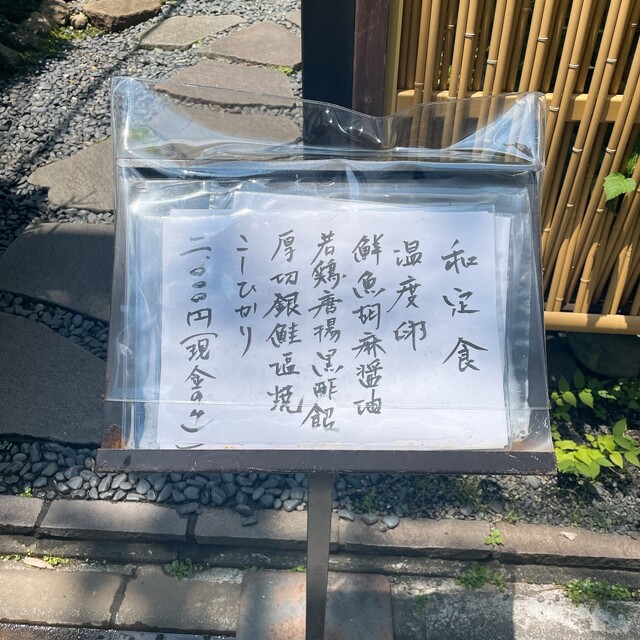 和定食
温度卵
鮮魚胡麻醤油
若鶏唐揚黒酢餡
厚切銀鮭塩焼
こしひかり
二、000円(現金のみ)